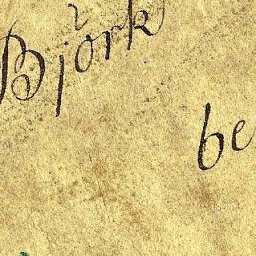 Björk
be